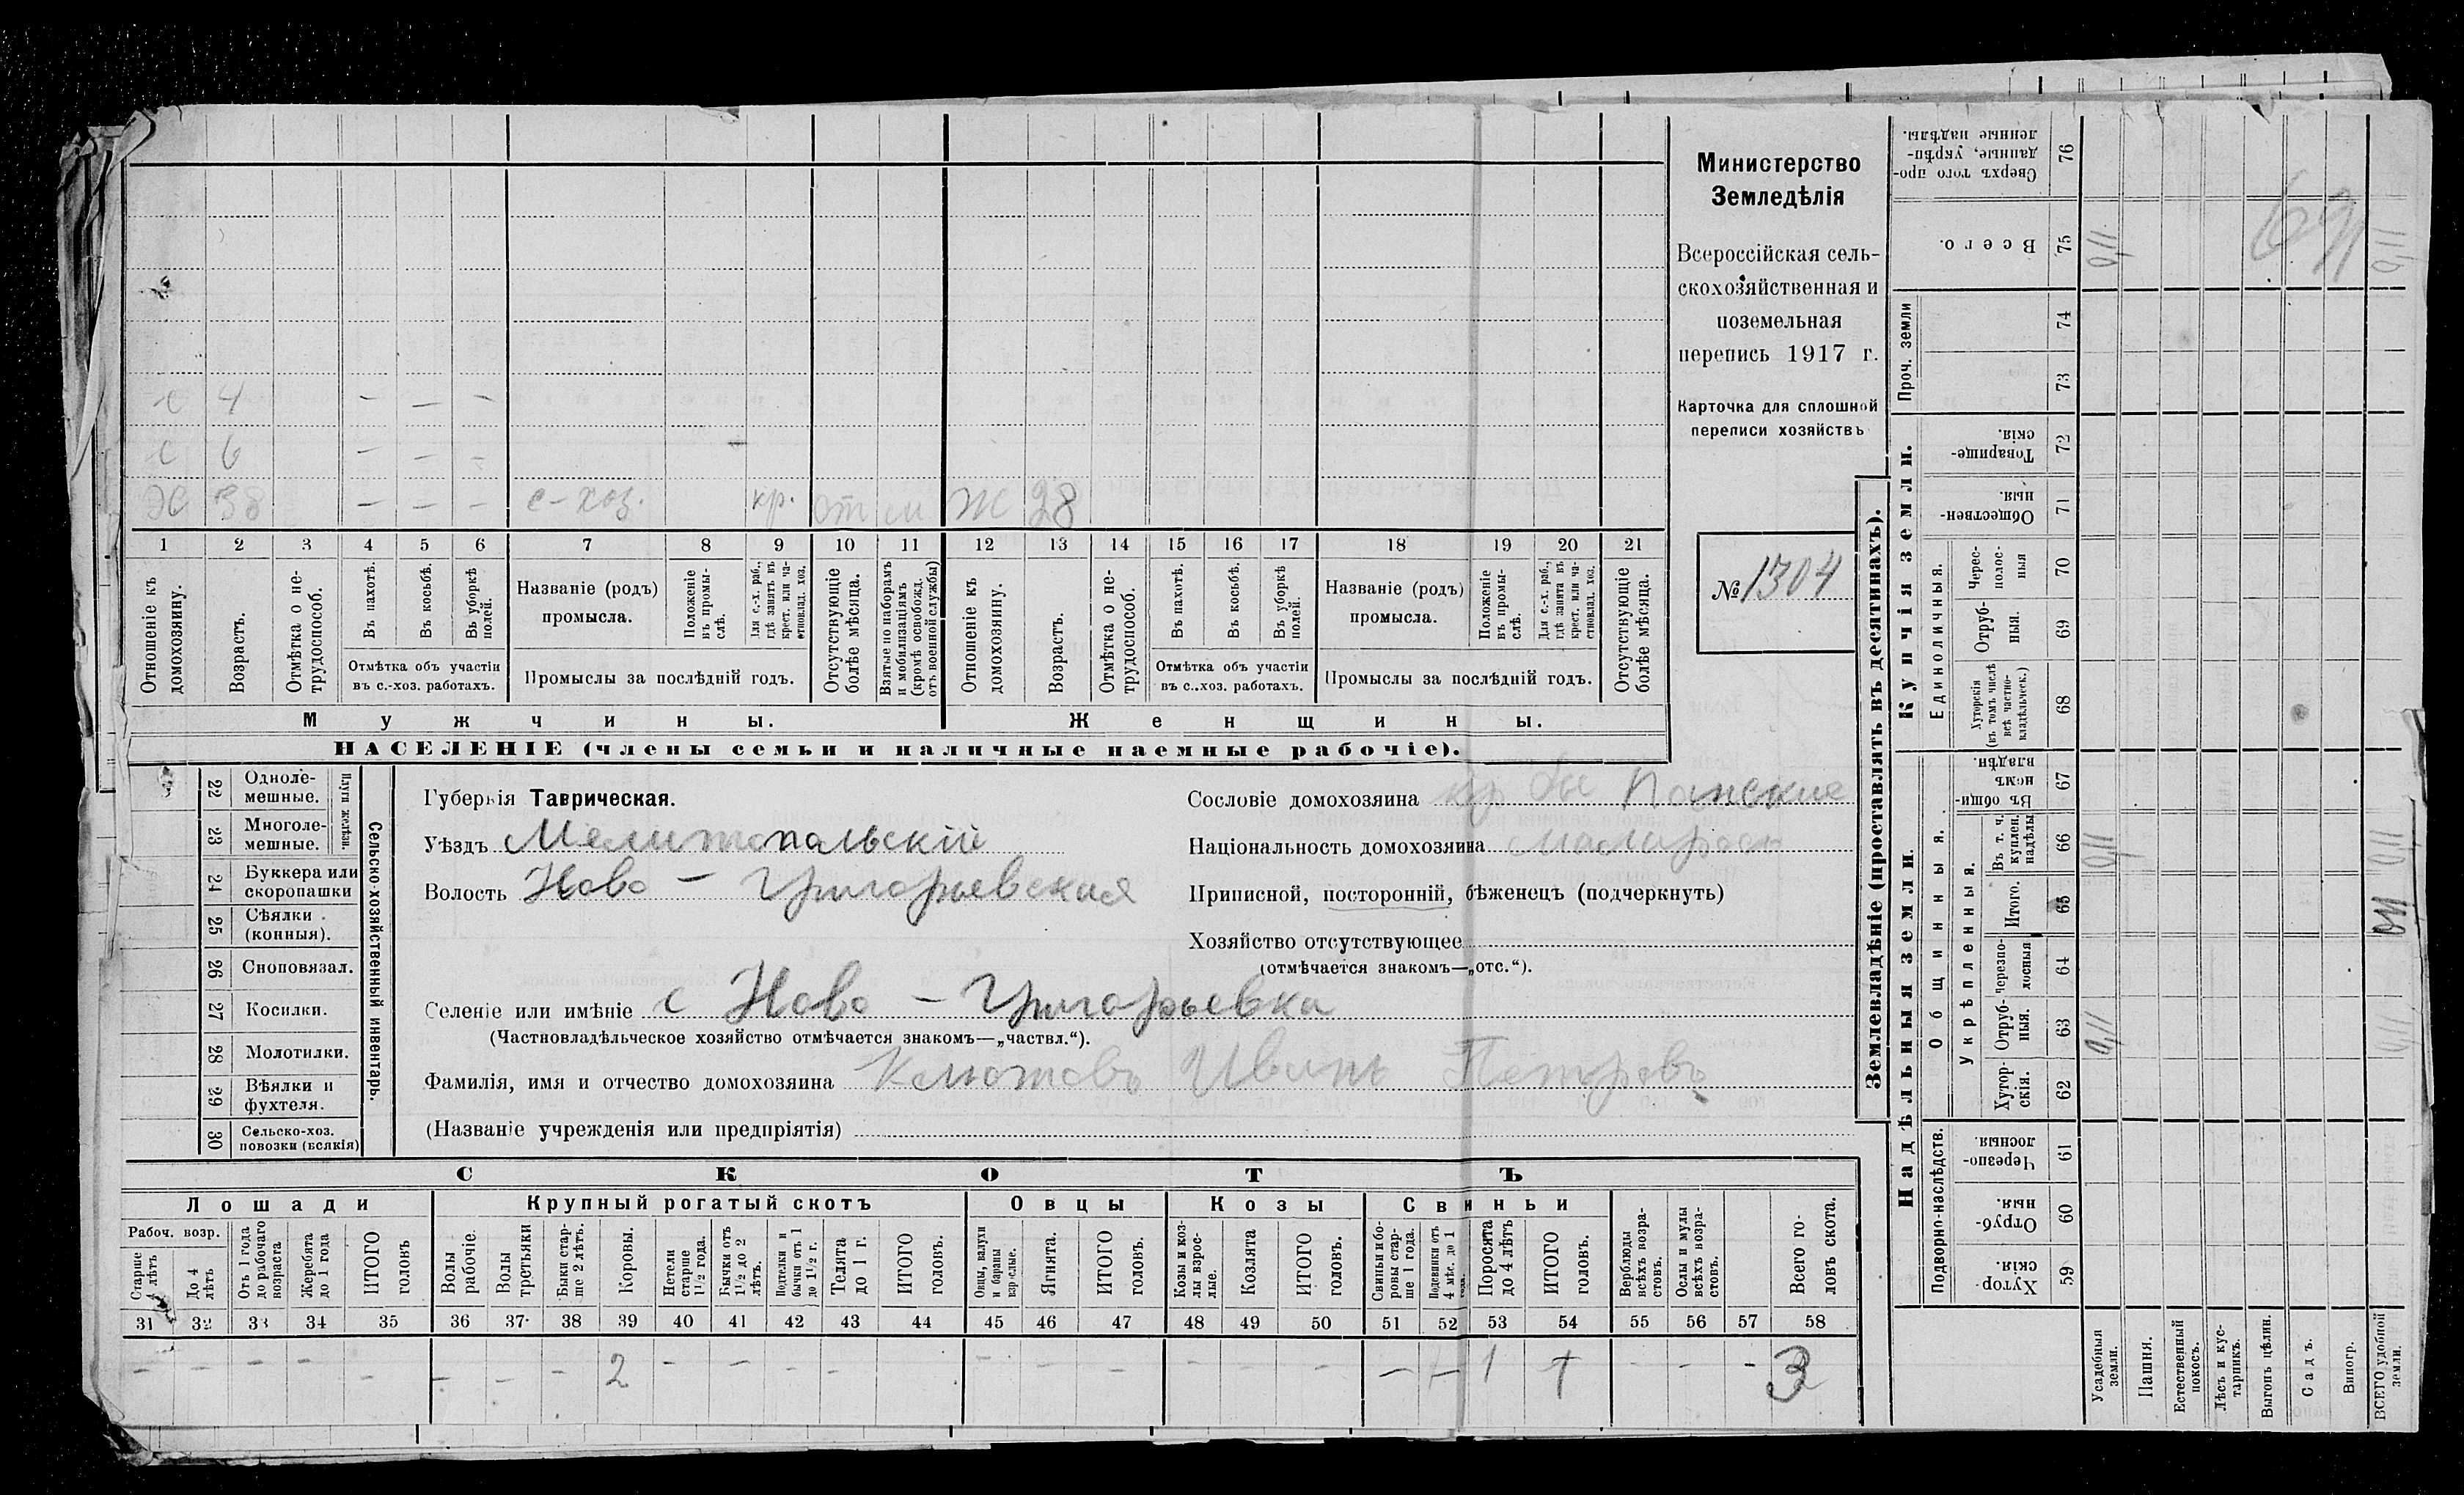 Министерство
Земледѣлія
Всероссійская сель-
скохозяйственная и
поземельная
перепись 1917 г.
Карточка для сплошной
переписи хозяйствъ
№ 1304
с 4 — — —
с 6 — — —
Х 38 — — — с-хоз. кр. от м Ж 28
1 2 3 4 5 6 7 8 9 10 11 12 13 14 15 16 17 18 19 20 21
Отношеніе къ домохозяину.
Возрастъ.
Отмѣтка о не-трудоспособ.
Въ пахотѣ.
Въ косьбѣ.
Въ уборкѣ полей.
Отмѣтка объ участіи
въ с.-хоз. работахъ.
Названіе (родъ)
промысла.
Положеніе въ промы-слѣ.
Для с.-х. раб., гдѣ занятъ въ крест. или ча-стновлад. хоз.
Промыслы за послѣдній годъ.
Отсутствующіе болѣе мѣсяца.
Взятые по наборамъ и мобилизаціямъ (кромѣ освобожд. отъ военной службы)
Отношеніе къ домохозяину.
Возрастъ.
Отмѣтка о не-трудоспособ.
Въ пахотѣ.
Въ косьбѣ.
Въ уборкѣ полей.
Отмѣтка объ участіи
въ с..хоз. работахъ.
Названіе (родъ)
промысла.
Положеніе въ промы-слѣ.
Для с.-х. раб., гдѣ занята въ крест. или ча-стновлад. хоз.
Промыслы за послѣдній годъ.
Отсутствующіе болѣе мѣсяца.
Мужчины. Женщины.
НАСЕЛЕНІЕ (члены семьи и наличные наемные рабочіе).
Сельско-хозяйственный инвентарь.
Плуги желѣзн.
22 Одноле-мешные.
23 Многоле-мешные.
24 Буккера или скоропашки
25 Сѣялки (конныя).
26 Сноповязал.
27 Косилки.
28 Молотилки.
29 Вѣялки и фухтеля.
30 Сельско-хоз. повозки (всякія)
Губернія Таврическая.
Уѣздъ Мелитопольскій
Волость Ново - Григорьевская
Сословіе домохозяина Панские
Національность домохозяина малорос
Приписной, посторонній, бѣженецъ (подчеркнуть)
Хозяйство отсутствующее
(отмѣчается знакомъ—„отс.“).
Селеніе или имѣніе с Ново - Григорьевка
(Частновладѣльческое хозяйство отмѣчается знакомъ—„частвл.“).
Фамилія, имя и отчество домохозяина Иванъ Петровъ
(Названіе учрежденія или предпріятія)
СКОТЪ
Лошади Крупный рогатый скотъ Овцы Козы Свиньи
Рабоч. возр.
Старше 4 лѣтъ
До 4 лѣтъ
Отъ 1 года до рабочаго возраста
Жеребята до 1 года
ИТОГО головъ
Волы рабочіе.
Волы третьяки
Быки стар-ше 2 лѣтъ.
Коровы.
Нетели старше 1½ года.
Бычки отъ 1½ до 2 лѣтъ.
Подтелки и бычки отъ 1 до 1½ г.
Телята до 1 г.
ИТОГО головъ.
Овцы, валухи и бараны взрослые.
Ягнята.
ИТОГО головъ.
Козы и коз-лы взрос-лые.
Козлята
ИТОГО головъ.
Свиньи и бо-ровы стар-ше 1 года.
Подсвинки отъ 4 мѣс. до 1 года.
Поросята до 4 лѣтъ
ИТОГО головъ.
Верблюды всѣхъ возра-стовъ.
Ослы и мулы всѣхъ возра-стовъ.
Всего го-ловъ скота.
31 32 33 34 35 36 37 38 39 40 41 42 43 44 45 46 47 48 49 50 51 52 53 54 55 56 57 58
— — — — — — — — 2 — — — — — — — — — — — — — 1 1 — — — 3
Землевладѣніе (проставлять въ десятинахъ).
Купчія земли.
Надѣльныя земли.
Проч. земли
Единоличныя.
Общинныя.
Укрѣпленныя.
Подворно-наслѣдств.
Сверхъ того про-данные, укрѣп-ленные надѣлы. 76
Всего. 75 0,11 0,11
69
74
73
Товарище-скія. 72
Обществен-ныя. 71
Черес-полос-ныя 70
Отруб-ныя. 69
Хуторскія (въ томъ числѣ всѣ частно-владѣльческ.) 68
Въ общин-номъ владѣн. 67
Въ т. ч. куплен. надѣлы 66 0,11 0,11
Итого. 65 0,11
Черезпо-лосныя 64
Отруб-ныя. 63 0,11 0,11
Хутор-скія. 62
Черезпо-лосныя. 61
Отруб-ныя. 60
Хутор-скія. 59
Усадебныя земли.
Пашня.
Естественный покосъ.
Лѣсъ и кус-тарникъ.
Выгонъ цѣлин.
Садъ.
Виногр.
ВСЕГО удобной земли.